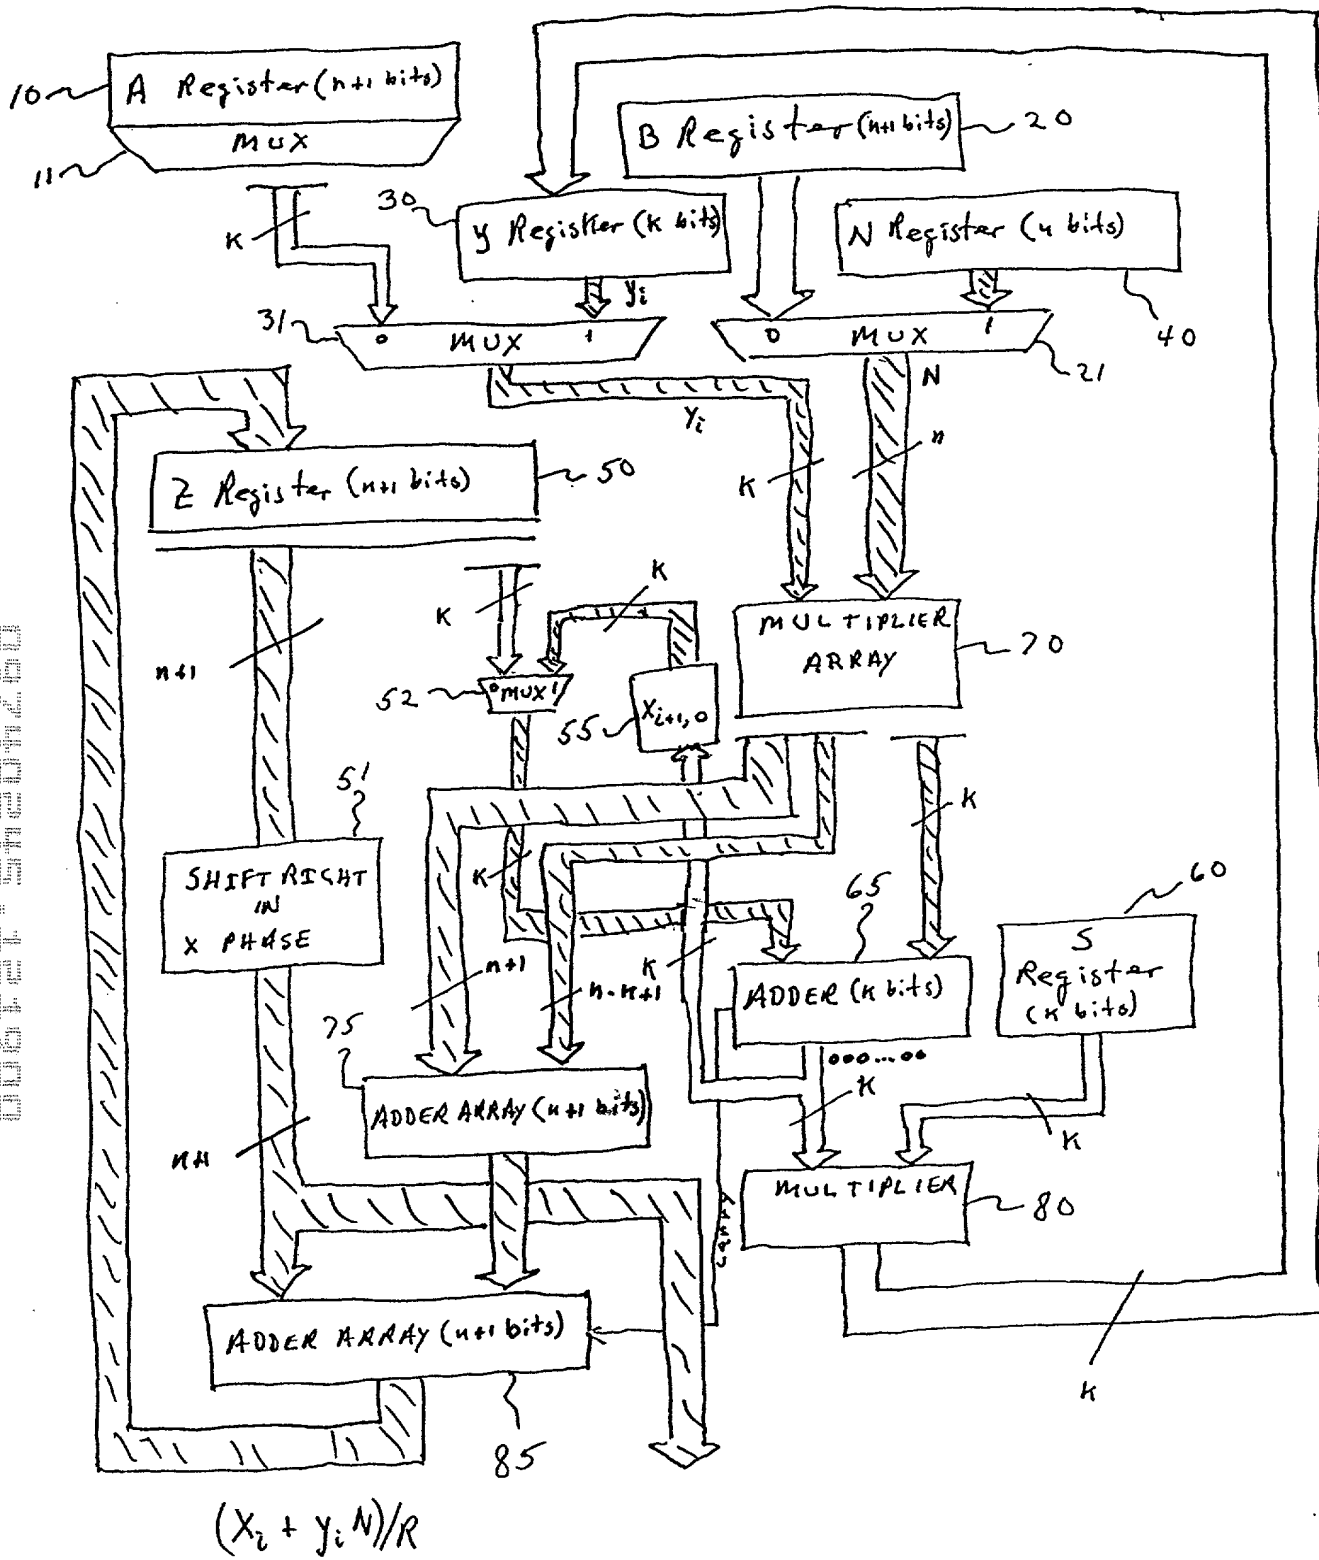 10
A Register (n+1 bits)
MUX
11
B Register (n+1 bits)
20
K
30
Y Register (K bits)
N Register (n bits)
yi
31
0 MUX 1
0 MUX 1
40
21
N
Yi
n
K
Z Register (n+1 bits)
50
K
K
MULTIPLIER
ARRAY
70
n+1
52
0 MUX 1
55
Xi+1,0
51
K
SHIFT RIGHT
IN
X PHASE
K
65
60
n+1
K
n-k+1
ADDER (K bits)
S
Register
(K bits)
75
000...00
ADDER ARRAY (n+1 bits)
K
K
n+1
MULTIPLIER
80
CARRY
ADDER ARRAY (n+1 bits)
85
K
(Xi + yi N)/R